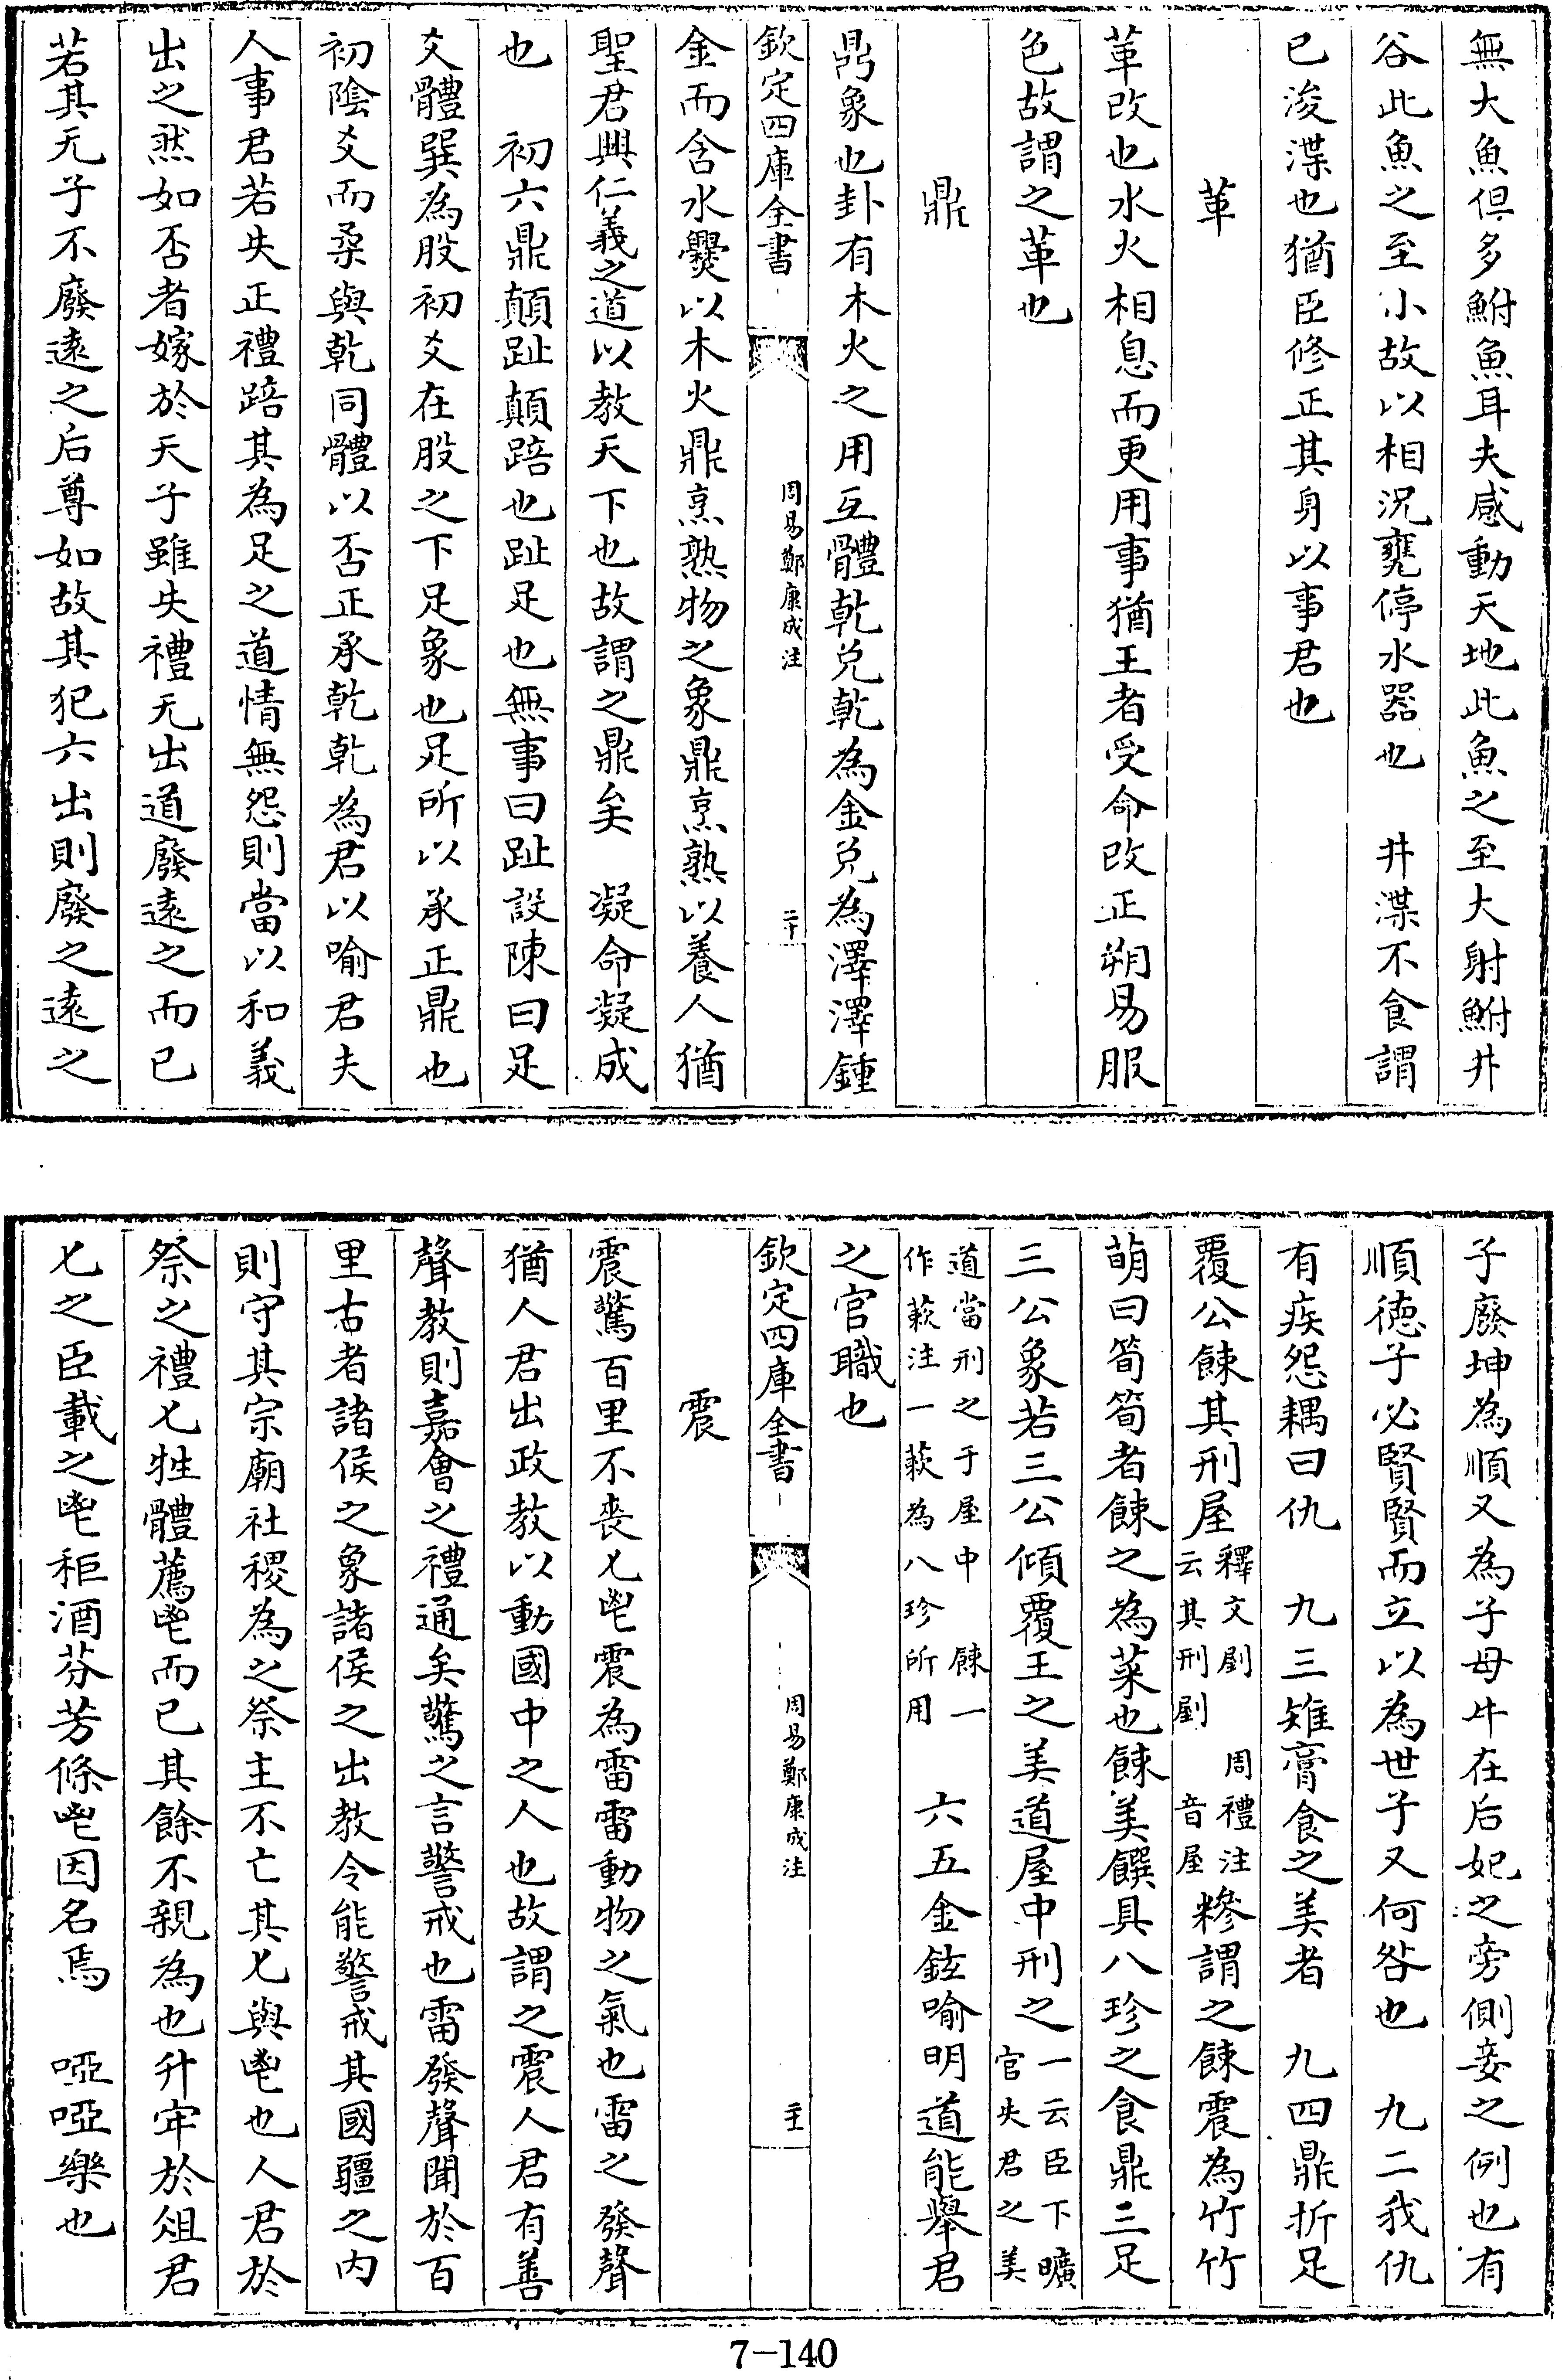 無大魚但多鮒魚耳夫感動天地此魚之至大射鮒井
谷此魚之至小故以相況甕停水器也　井渫不食謂
已浚渫也猶臣修正其身以事君也
革
革改也水火相息而更用事猶王者受命改正朔易服
色故謂之革也
鼎
鼎象也卦有木火之用互體乾兌乾為金兌為澤澤鍾
欽定四庫全書
周易鄭康成注
二十
金而含水爨以木火鼎烹熟物之象鼎烹熟以養人猶
聖君興仁義之道以教天下也故謂之鼎矣　凝命凝成
也　初六鼎顛趾顛踣也趾足也無事曰趾設陳曰足
爻體巽為股初爻在股之下足象也足所以承正鼎也
初陰爻而柔與乾同體以否正承乾乾為君以喻君夫
人事君若失正禮踣其為足之道情無怨則當以和義
出之然如否者嫁於天子雖失禮无出道廢遠之而已
若其无子不廢遠之后尊如故其犯六出則廢之遠之
子廢坤為順又為子母牛在后妃之旁側妾之例也有
順德子必賢賢而立以為世子又何咎也　九二我仇
有疾怨耦曰仇　九三雉膏食之美者　九四鼎折足
覆公餗其刑屋釋文剭　周禮注云其刑剭　音屋糝謂之餗震為竹竹
萌曰筍筍者餗之為菜也餗美饌具八珍之食鼎三足
三公象若三公傾覆王之美道屋中刑之一云臣下曠官失君之美
道當刑之于屋中　餗一作蔌注一蔌為八珍所用　六五金鉉喻明道能舉君
之官職也
欽定四庫全書
周易鄭康成注
二十一
震
震驚百里不喪匕鬯震為雷雷動物之氣也雷之發聲
猶人君出政教以動國中之人也故謂之震人君有善
聲教則嘉會之禮通矣驚之言警戒也雷發聲聞於百
里古者諸侯之象諸侯之出教令能警戒其國疆之內
則守其宗廟社稷為之祭主不亡其匕與鬯也人君於
祭之禮匕牲體薦鬯而已其餘不親為也升牢於俎君
匕之臣載之鬯秬酒芬芳條鬯因名焉　啞啞樂也
7-140